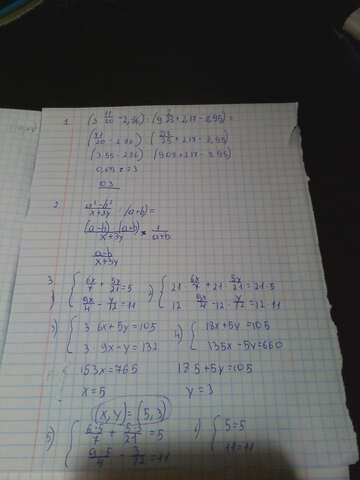 1. (3 11/20 - 2,86) : (9 2/25 + 2,17 - 8,95) =
(71/20 - 2,86) : (227/25 + 2,17 - 8,95)
(3,55 - 2,86) (9,08 + 2,17 - 8,95)
0,3
2. (a² - b²)/(x+3y) : (a+b) =
((a-b) (a+b))/(x+3y) × 1/(a+b)
(a-b)/(x+3y)
3.
1) { 6x/7 + 5y/21 = 5
9x/4 - y/12 = 11
2) { 21 6x/7 + 21 5y/21 = 21·5
12 9x/4 - 12 · y/12 = 12·11
3) { 3 6x + 5y = 105
3 · 9x - y = 132
4) { 18x + 5y = 105
135x - 5y = 660
153x = 765
18·5 + 5y = 105
x = 5
y = 3
(x, y) = (5, 3)
5) { 6·5/7 + 5·3/21 = 5
9·5/4 - 3/12 = 11
{ 5 = 5
11 = 11